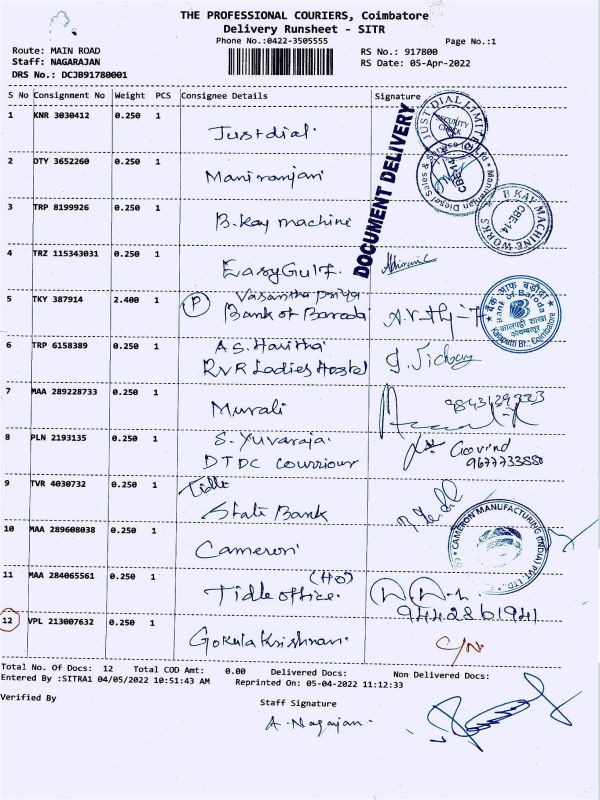 THE PROFESSIONAL COURIERS, Coimbatore
Delivery Runsheet - SITR
Phone No.:0422-3505555
Page No.:1
Route: MAIN ROAD
RS No.: 917800
Staff: NAGARAJAN
RS Date: 05-Apr-2022
DRS No.: DCJB91780001
S No Consignment No Weight PCS Consignee Details Signature
1 KNR 3030412 0.250 1
Justdial.
JUST DIAL LIMITED
SECURITY CHECK
DOCUMENT DELIVERY
2 OTY 3652260 0.250 1
Maniranjan
Diesel Sales &
CBE-14
3 TRP 8199926 0.250 1
B.Kay machine
B KAY MACHINE WORKS
CBE-14
4 TRZ 115343031 0.250 1
EasyGulf.
5 TKY 387914 2.400 1
P Vasantha priya
Bank of Baroda
बैंक ऑफ बड़ौदा
Bank of Baroda
कालपट्टी शाखा
कोयम्बत्तूर
Kalapatti Br., Coimbatore
6 TRP 6158389 0.250 1
A S. Haritha
RVR Ladies Hostel
7 MAA 289228733 0.250 1
Murali
8 PLN 2193135 0.250 1
S. Yuvaraja.
DTDC courriour
Govind
9677733880
9 TVR 4030732 0.250 1
Tidle
State Bank
10 MAA 289608038 0.250 1
Cameron
CAMERON MANUFACTURING (INDIA) PVT. LTD.
11 MAA 284065561 0.250 1
(HO)
Tidle office.
9442861941
12 VPL 213007632 0.250 1
Gokulakrishnan.
C/N.
Total No. Of Docs: 12 Total COD Amt: 0.00 Delivered Docs: Non Delivered Docs:
Entered By :SITRA1 04/05/2022 10:51:43 AM Reprinted On: 05-04-2022 11:12:33
Verified By
Staff Signature
A. Nagarajan.